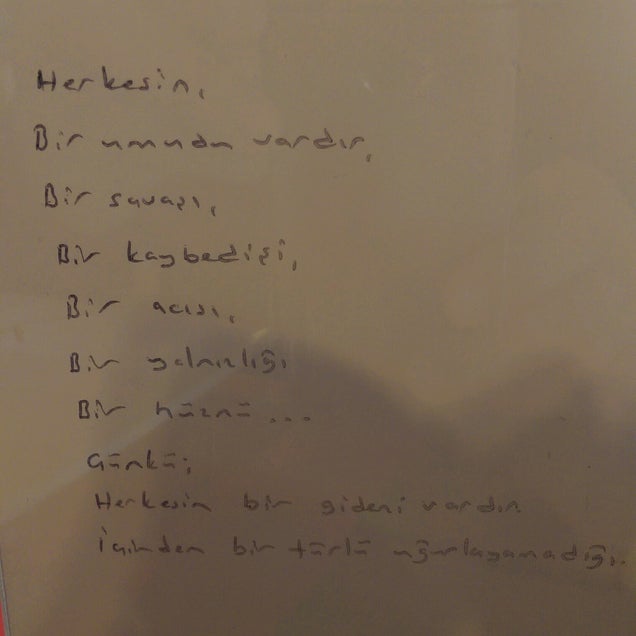 Herkesin,
Bir umudu vardır,
Bir savaşı,
Bir kaybedişi,
Bir acısı,
Bir yalnızlığı
Bir hüznü...
Çünkü;
Herkesin bir gideni vardır.
İçinden bir türlü uğurlayamadığı..